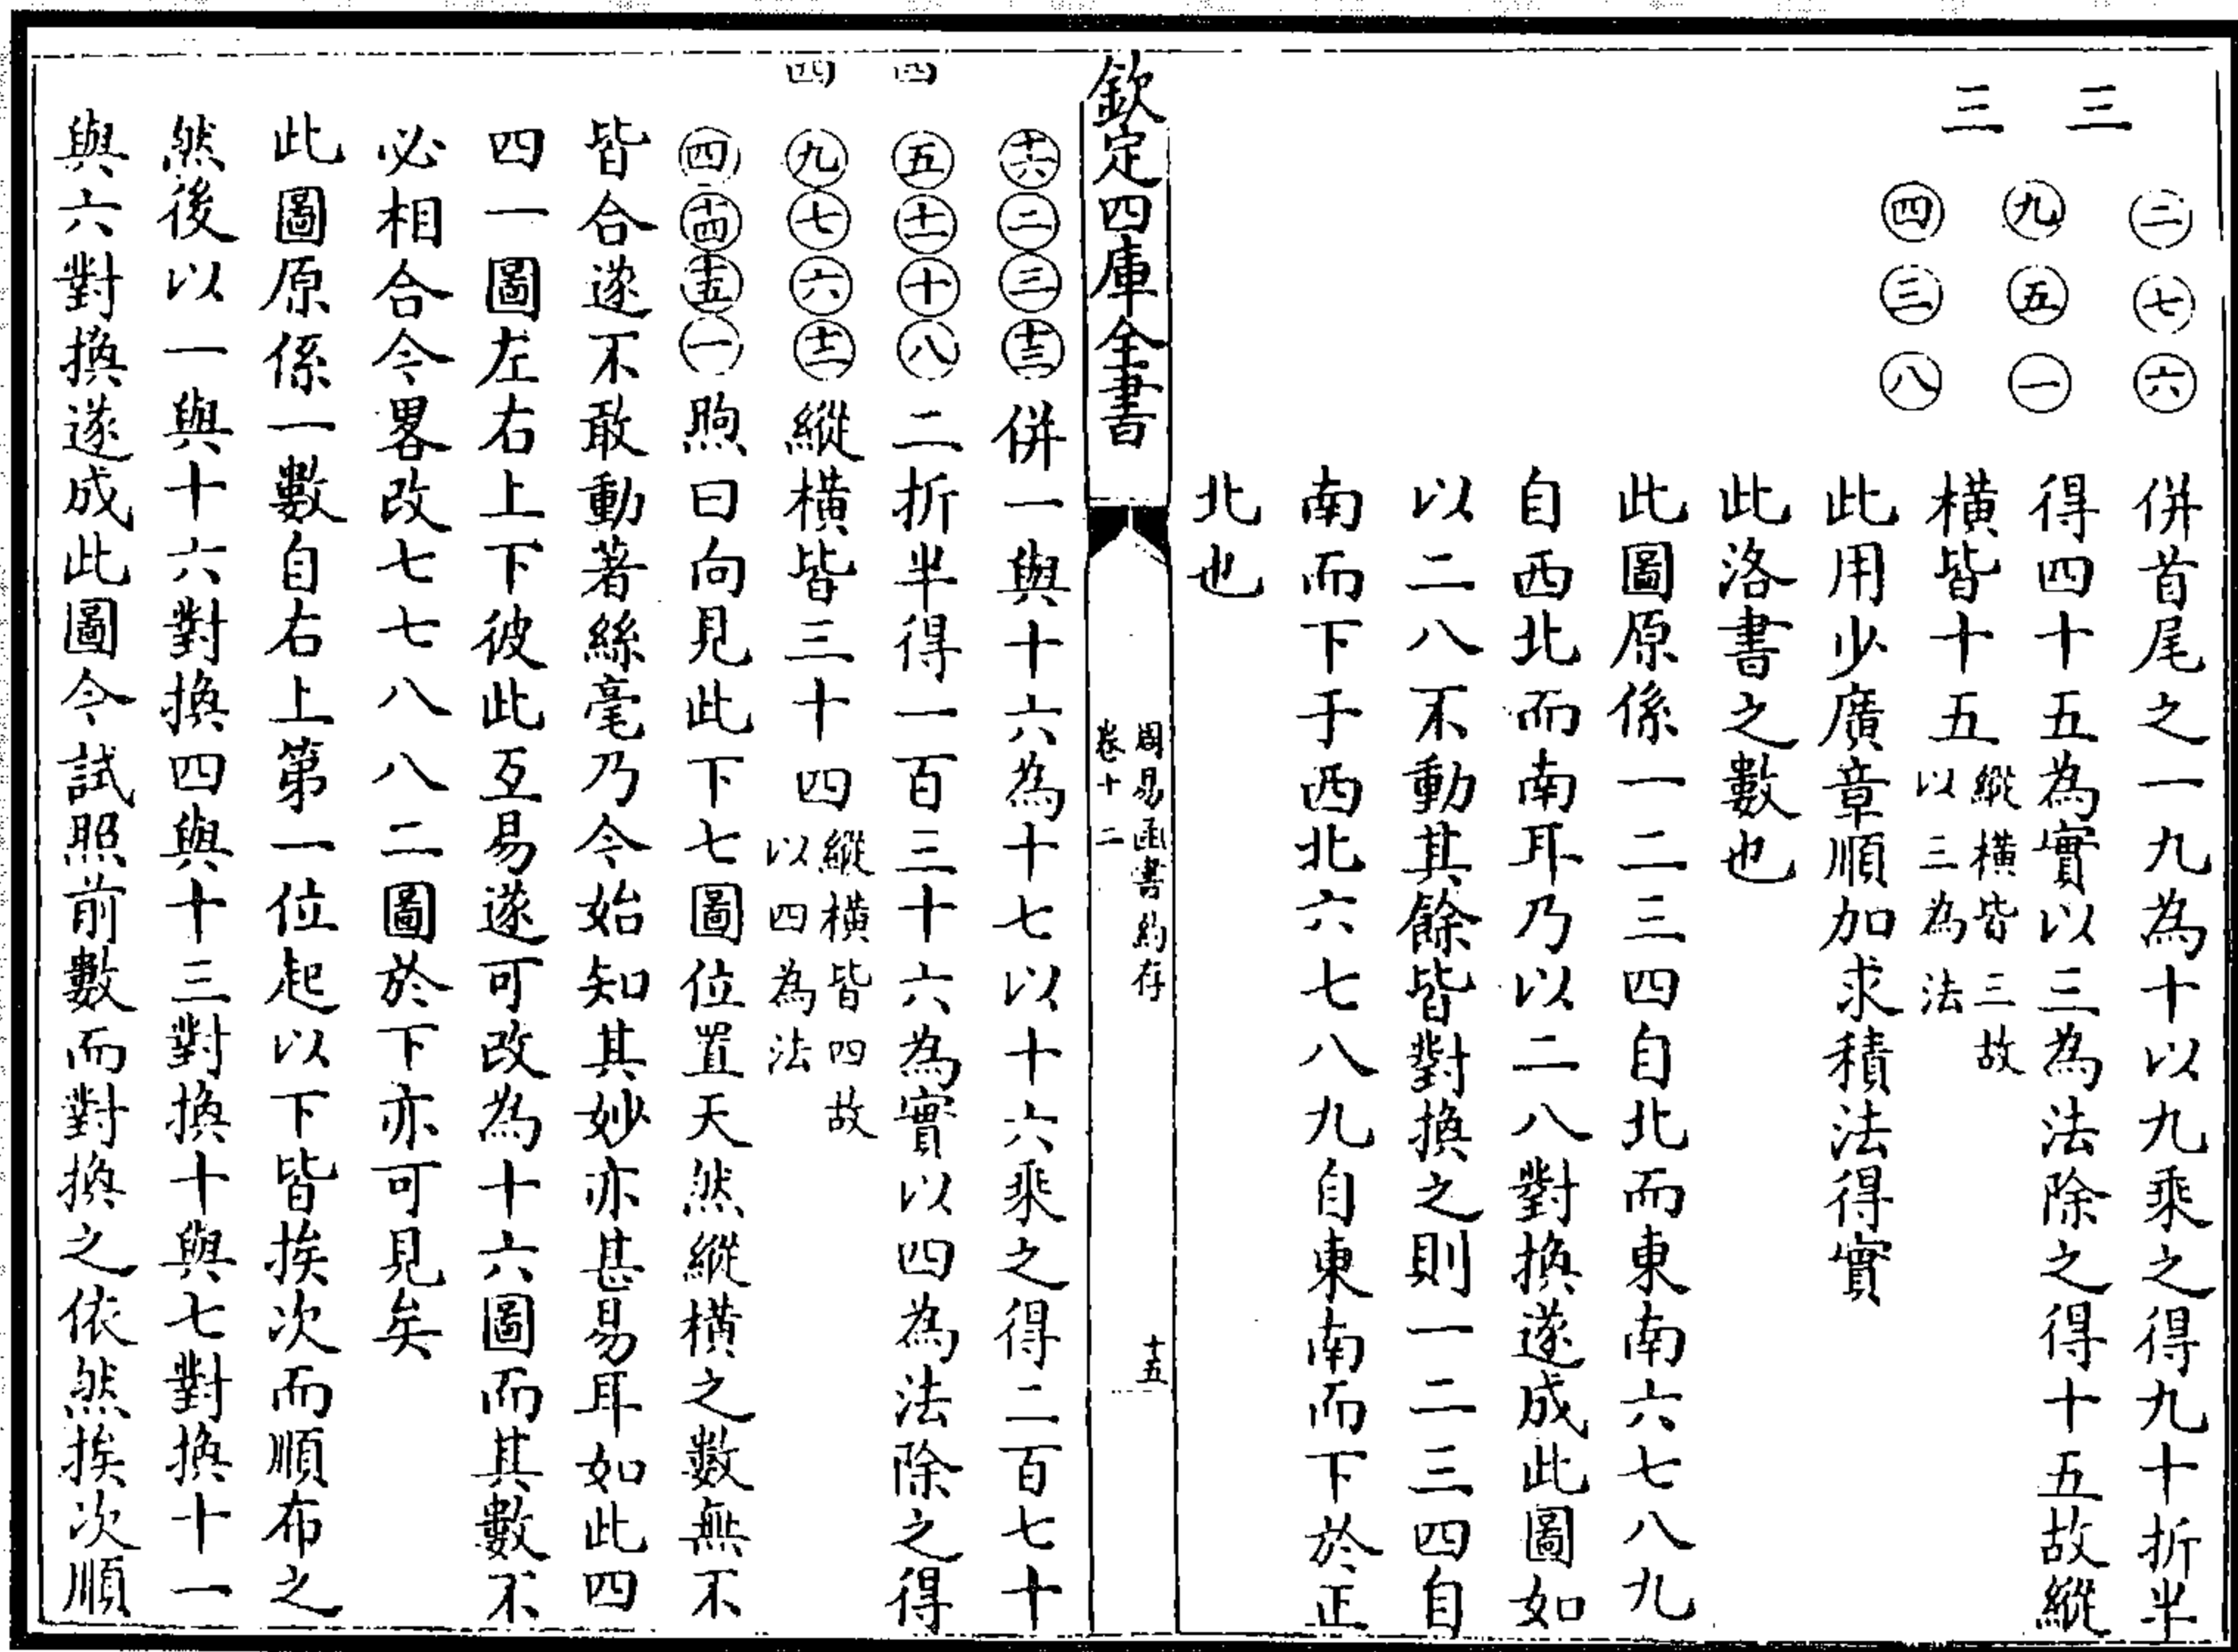 三 二七六 併首尾之一九為十以九乘之得九十折半
三 九五一 得四十五為實以三為法除之得十五故縱
四三八 橫皆十五縱橫皆三故以三為法
此用少廣章順加求積法得實
此洛書之數也
此圖原係一二三四自北而東南六七八九
自西北而南耳乃以二八對換遂成此圖如
以二八不動其餘皆對換之則一二三四自
南而下于西北六七八九自東南而下於正
北也
欽定四庫全書
周易函書約存
卷十二
十五
十六二三十三併一與十六為十七以十六乘之得二百七十
四 五十一十八二折半得一百三十六為實以四為法除之得
四 九七六十二縱橫皆三十四縱橫皆四故以四為法
四十四十五一煦曰向見此下七圖位置天然縱橫之數無不
皆合遂不敢動著絲毫乃今始知其妙亦甚易耳如此四
四一圖左右上下彼此互易遂可改為十六圖而其數不
必相合今畧改七七八八二圖於下亦可見矣
此圖原係一數自右上第一位起以下皆挨次而順布之
然後以一與十六對換四與十三對換十與七對換十一
與六對換遂成此圖今試照前數而對換之依然挨次順